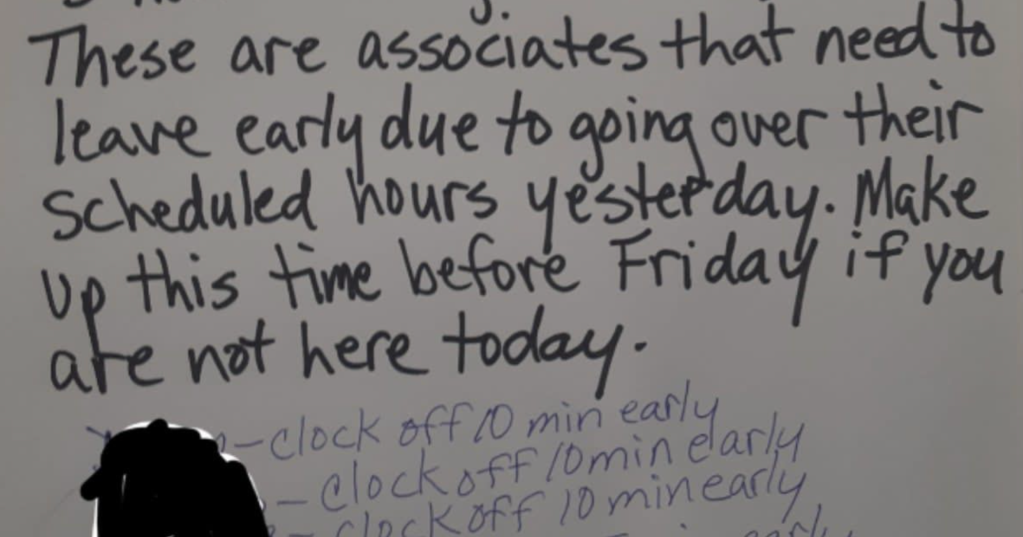 These are associates that need to
leave early due to going over their
scheduled hours yesterday. Make
up this time before Friday if you
are not here today.
-clock off 10 min early
-clock off 10 min early
-clock off 10 min early
early